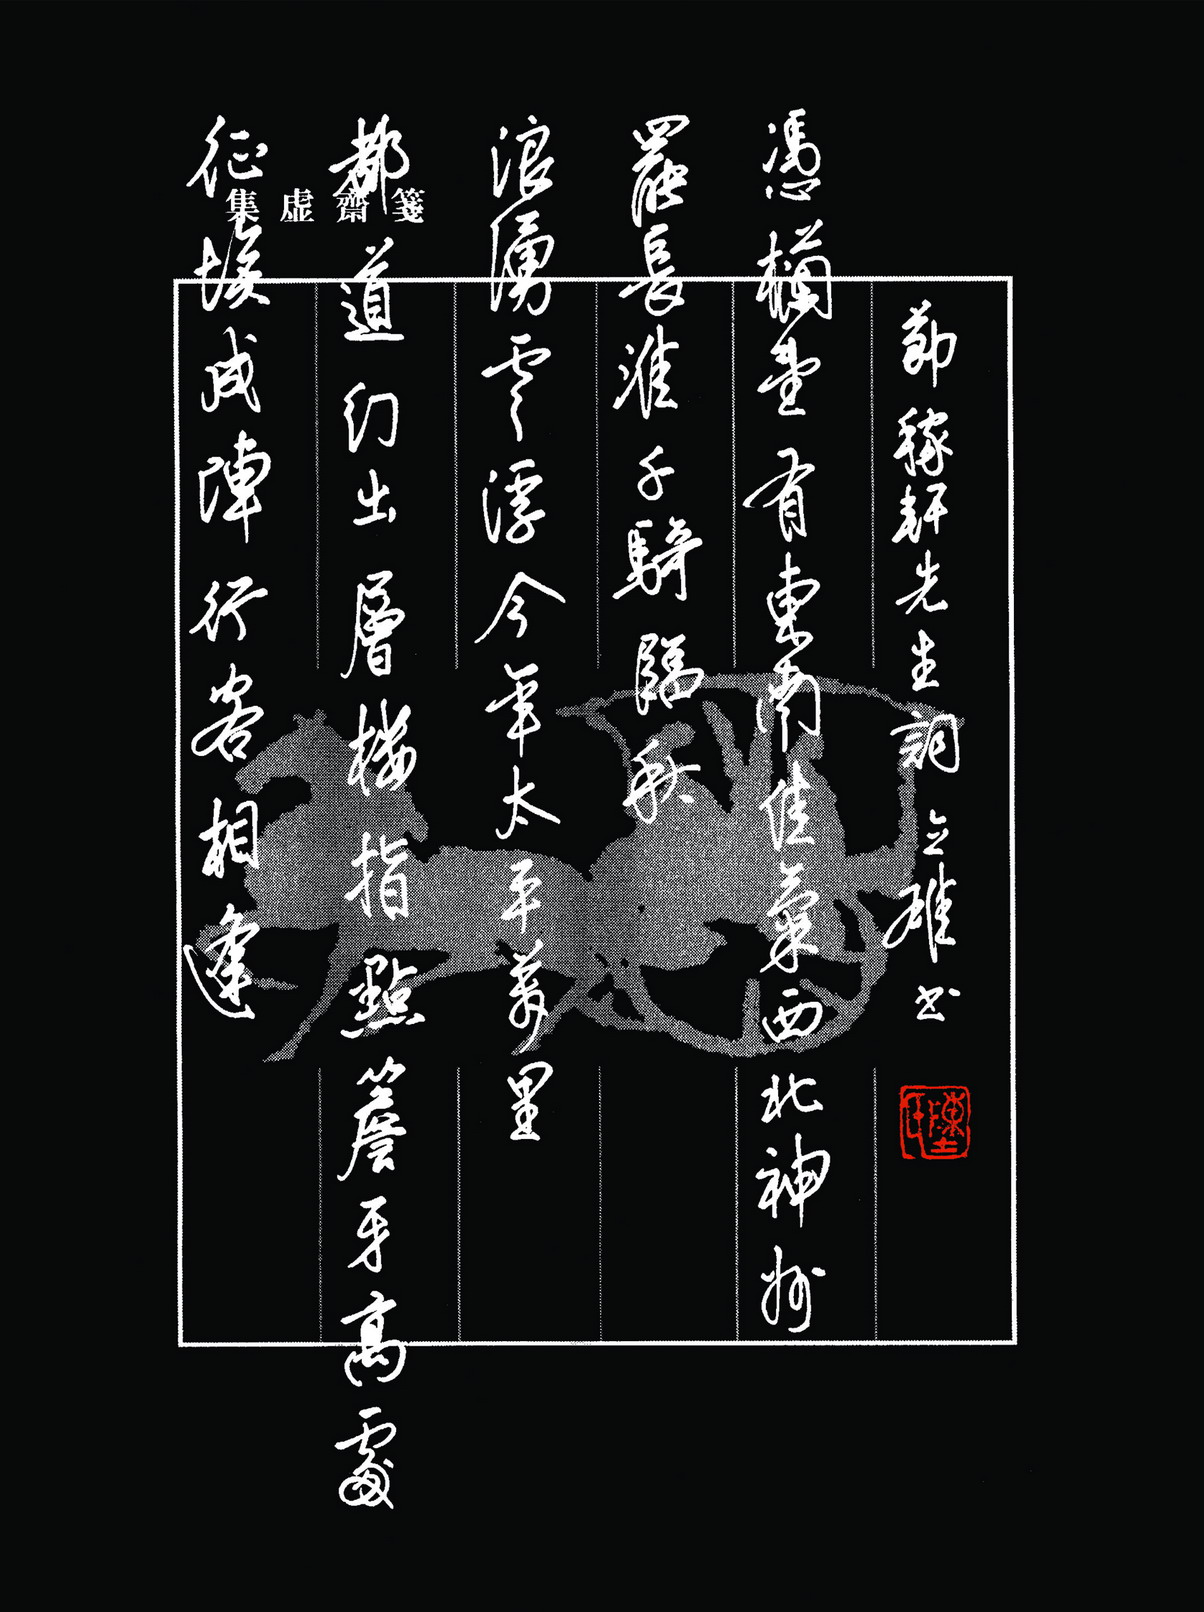 集虛齋箋
征埃成陣行客相逢
都道幻出層楼指點簷牙高處
浪湧雲浮今年太平萬里
罷長淮千騎臨秋
憑欄望有東南佳氣西北神州
節稼軒先生詞 書